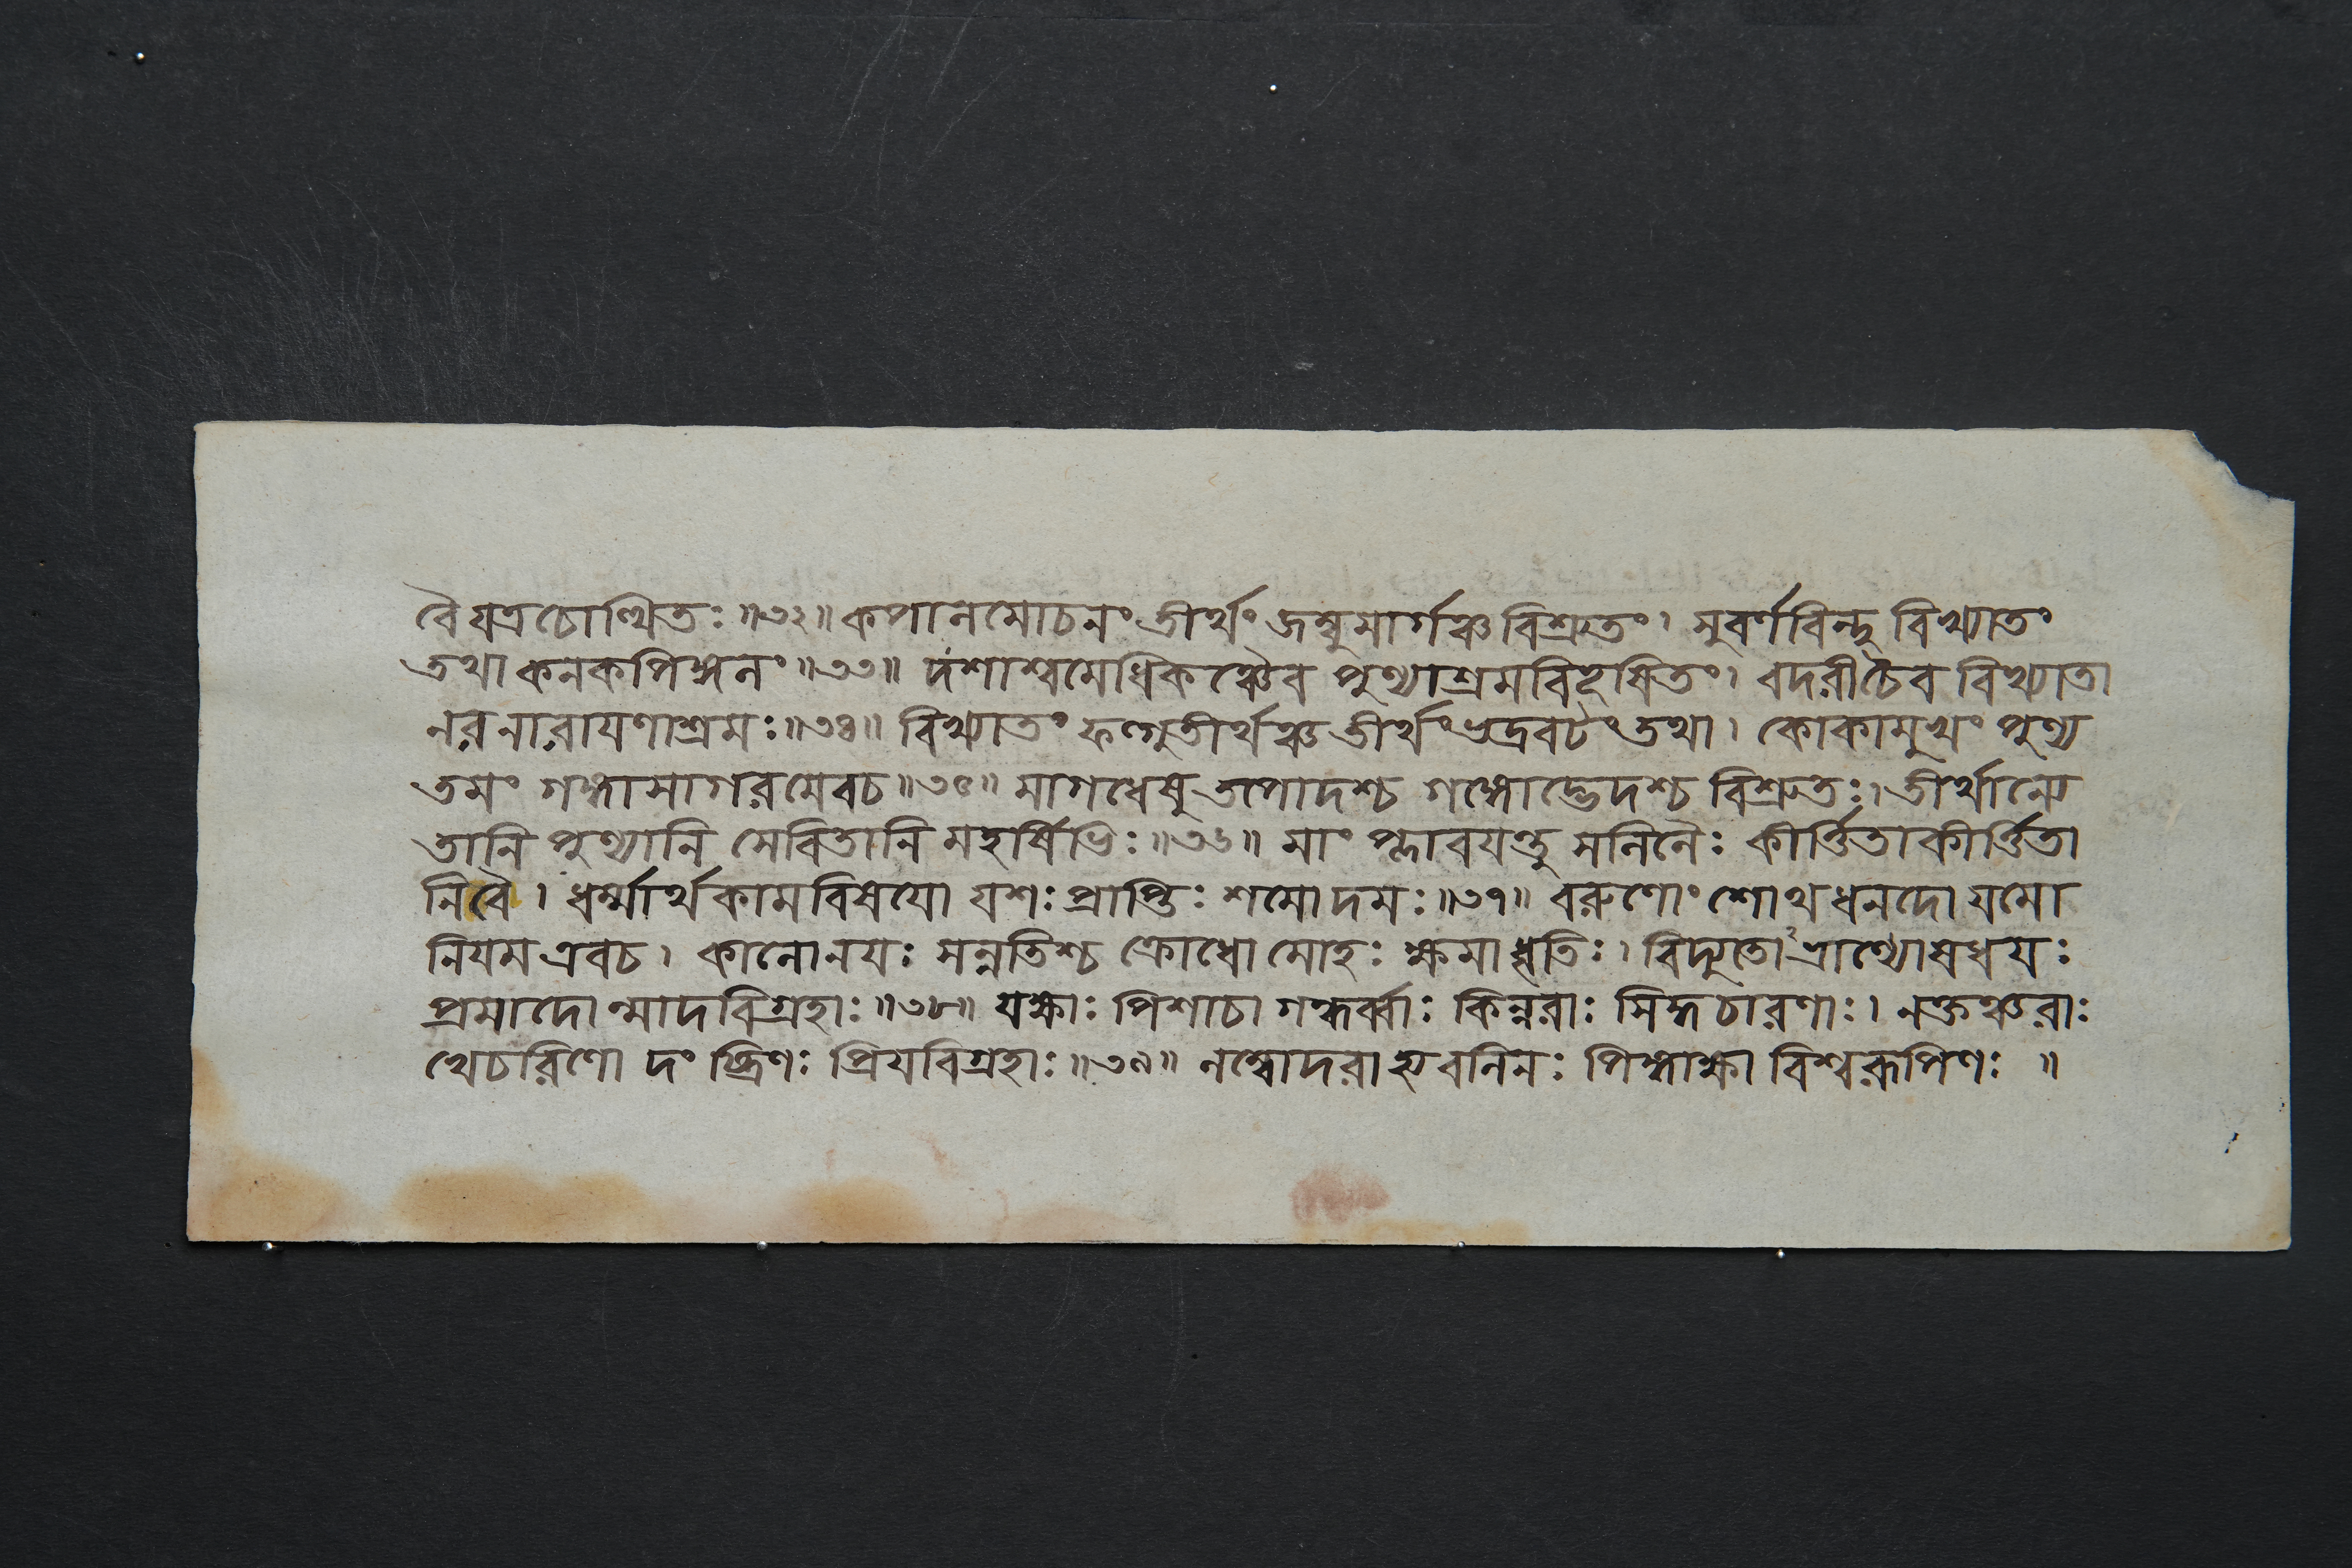 বৈযত্রচোত্থিতঃ ॥৩২॥ কপালমোচনং তীর্থং জম্বুমার্গঞ্চ বিশ্রুতং। সুবর্ণবিন্দু বিখ্যাতং
তথা কনকপিঙ্গলং ॥৩৩॥ দশাশ্বমেধিকঞ্চৈব পুণ্যাশ্রমবিভূষিতং। বদরীচৈব বিখ্যাতা
নরনারায়ণাশ্রমঃ ॥৩৪॥ বিখ্যাতং ফল্গুতীর্থঞ্চ তীর্থং ভদ্রবটং তথা। কোকামুখং পুণ্য
তমং গঙ্গাসাগরমেবচ ॥৩৫॥ মাগধেষু তপোদশ্চ গঙ্গোদ্ভেদশ্চ বিশ্রুতঃ। তীর্থান্যে
তানি পুণ্যানি সেবিতানি মহর্ষিভিঃ ॥৩৬॥ মাং প্লাবয়ন্তু সলিলৈঃ কীর্ত্তিতাকীর্ত্তিতা
নিবৈ। ধর্ম্মার্থকামবিষয়ো যশঃ প্রাপ্তিঃ শমোদমঃ ॥৩৭॥ বরুণোংশোথ ধনদো যমো
নিয়ম এবচ। কালোনয়ঃ সন্নতিশ্চ ক্রোধো মোহঃ ক্ষমাধৃতিঃ। বিদ্যুতো ভ্রাণ্যোষধয়ঃ
প্রমাদোন্মাদবিগ্রহাঃ ॥৩৮॥ যক্ষাঃ পিশাচা গন্ধর্ব্বাঃ কিন্নরাঃ সিদ্ধচারণাঃ। নক্তঞ্চরাঃ
খেচরিণো দংষ্ট্রিণঃ প্রিয়বিগ্রহাঃ ॥৩৯॥ লম্বোদরাস্থ বলিনঃ পিঙ্গাক্ষা বিশ্বরূপিণঃ ॥